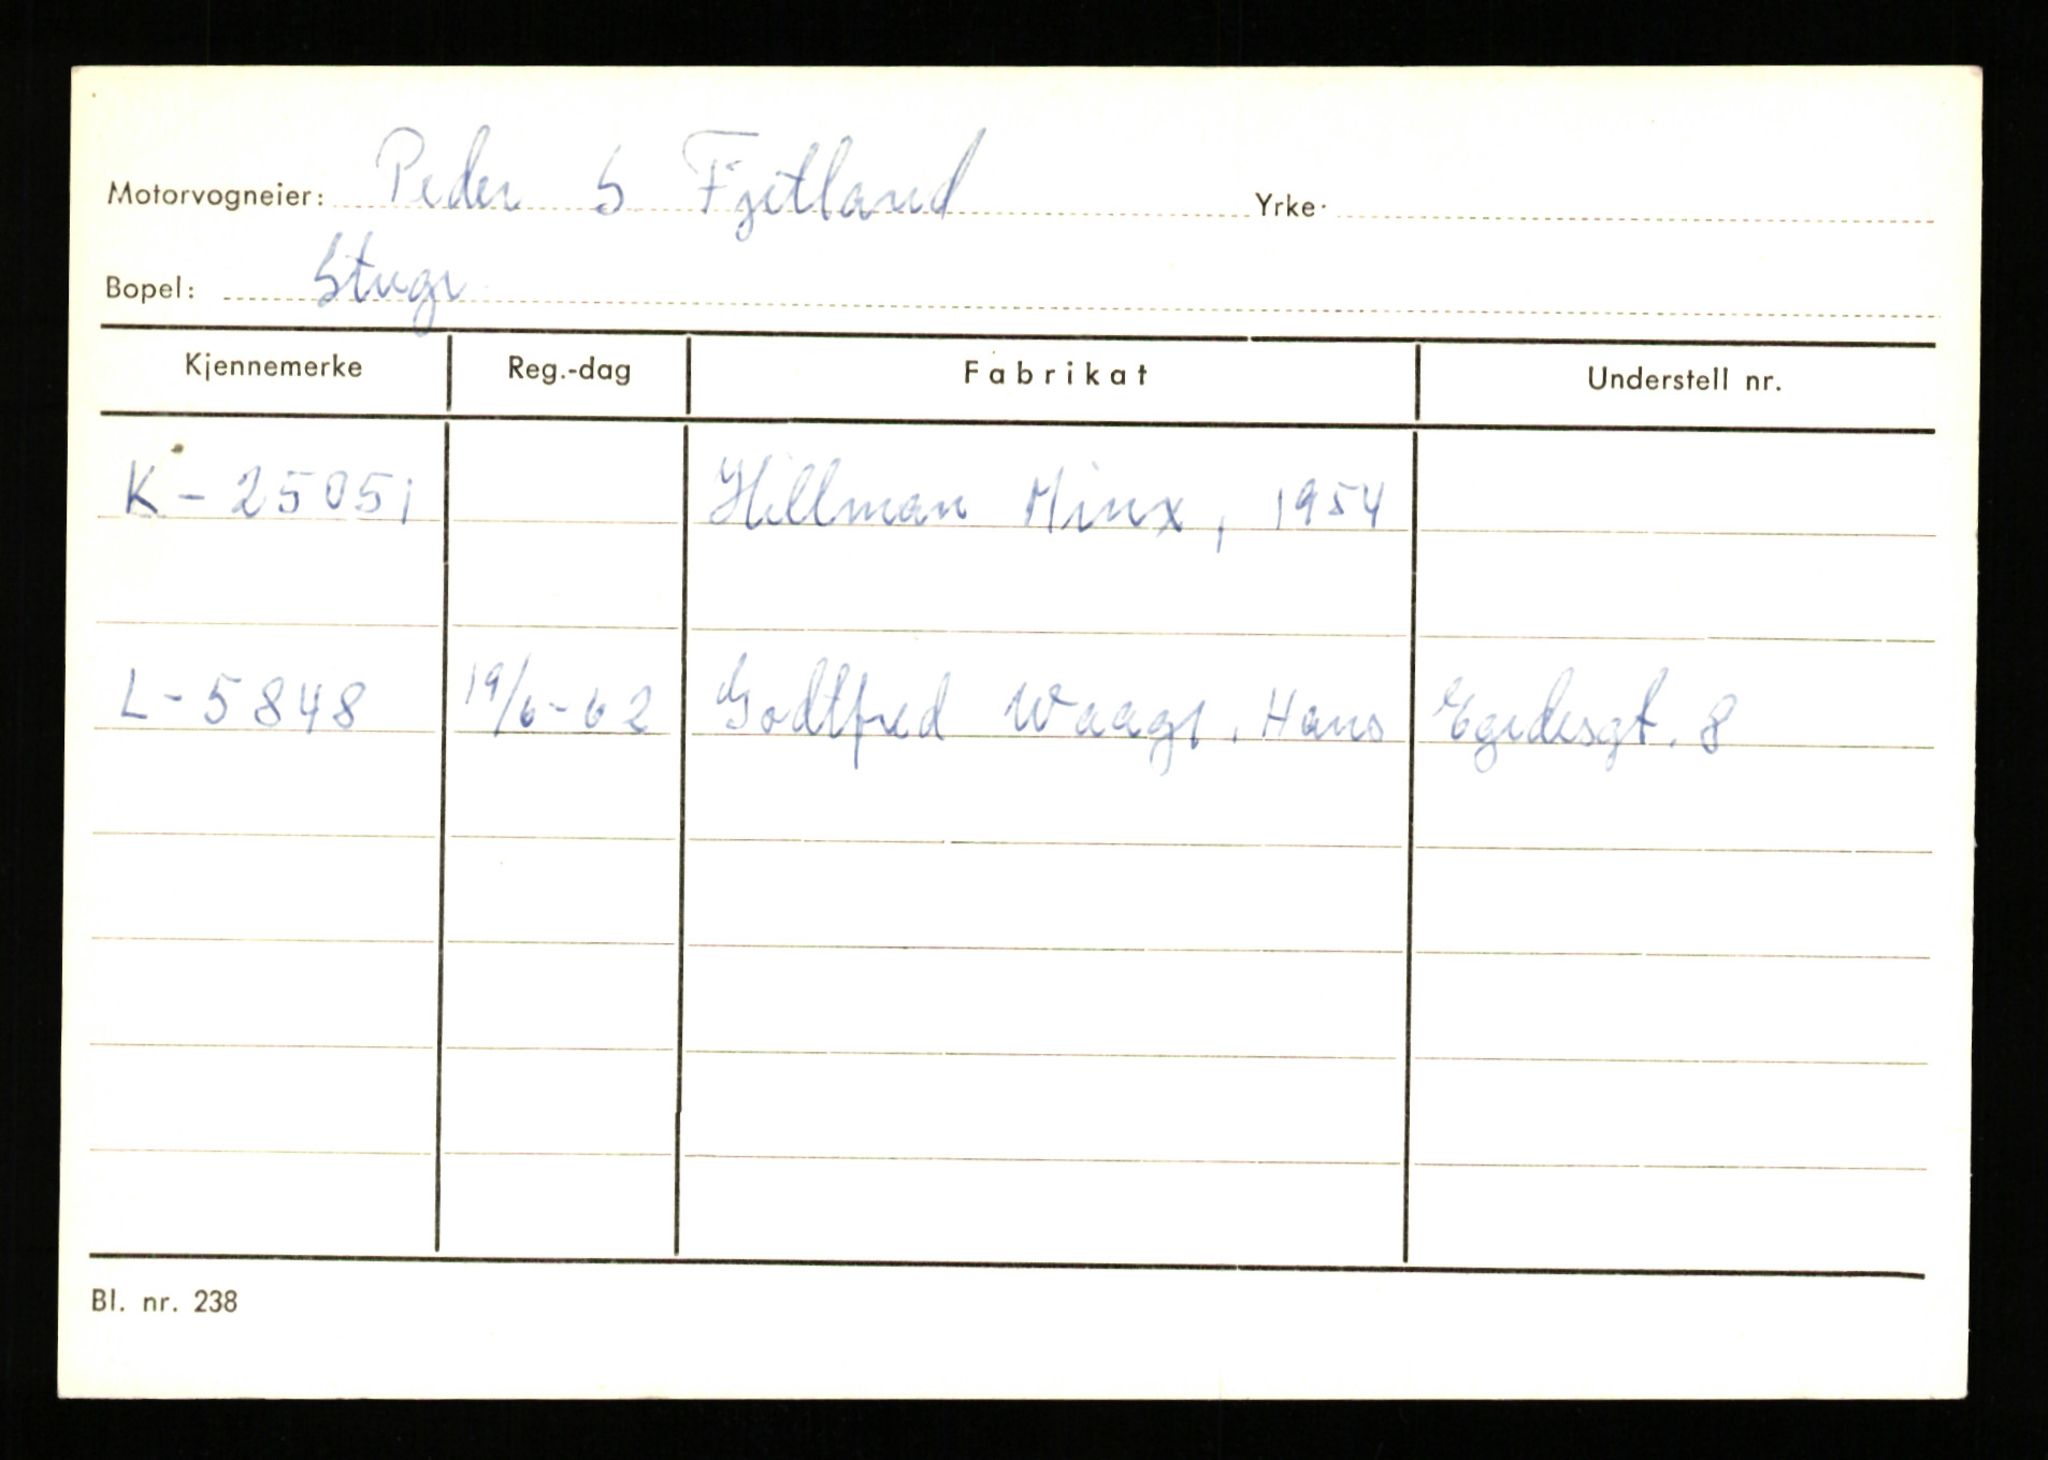 Motorvogneier: Peder S Fjetland Yrke:
Bopel: Stvgr
Kjennemerke Reg.-dag Fabrikat Understell nr.
K-25051 Hillman Minx, 1954
L-5848 19/6-62 Godtfred Waage. Hans Egedesgt. 8
Bl. nr. 238